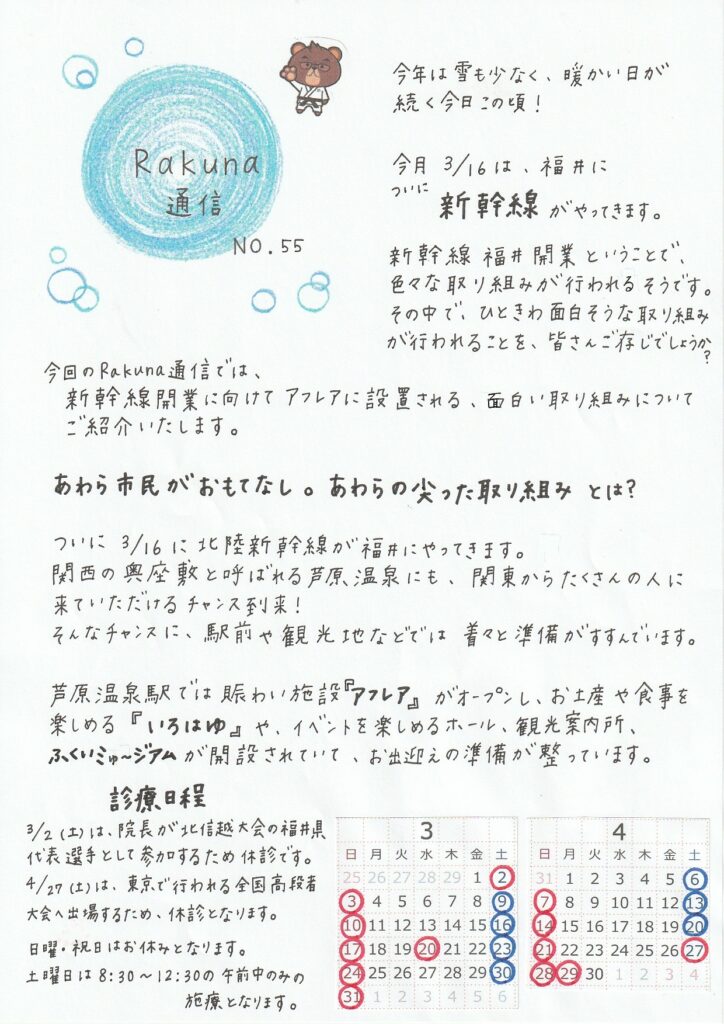 Rakuna
通信
NO.55
今年は雪も少なく、暖かい日が
続く今日この頃！
今月 3/16は、福井に
ついに
新幹線 がやってきます。
新幹線 福井開業ということで、
色々な取り組みが行われるそうです。
その中で、ひときわ面白そうな取り組み
が行われることを、皆さんご存じでしょうか?
今回のRakuna通信では、
新幹線開業に向けて アフレアに設置される、面白い取り組みについて
ご紹介いたします。
あわら市民がおもてなし。あわらの尖った取り組み とは?
ついに 3/16に北陸新幹線が福井にやってきます。
関西の奥座敷と呼ばれる芦原温泉にも、関東からたくさんの人に
来ていただけるチャンス到来！
そんなチャンスに、駅前や観光地などでは 着々と準備がすすんでいます。
芦原温泉駅では賑わい施設『アフレア』がオープンし、お土産や食事を
楽しめる『いろはゆ』や、イベントを楽しめるホール、観光案内所、
ふくいミュ〜ジアムが開設されていて、お出迎えの準備が整っています。
診療日程
3/2(土)は、院長が北信越大会の福井県
代表選手として参加するため休診です。
4/27(土)は、東京で行われる全国高段者
大会へ出場するため、休診となります。
日曜・祝日はお休みとなります。
土曜日は8:30〜12:30の午前中のみの
施療となります。
3
日 月 火 水 木 金 土
25 26 27 28 29 1 2
3 4 5 6 7 8 9
10 11 12 13 14 15 16
17 18 19 20 21 22 23
24 25 26 27 28 29 30
31 1 2 3 4 5 6
4
日 月 火 水 木 金 土
31 1 2 3 4 5 6
7 8 9 10 11 12 13
14 15 16 17 18 19 20
21 22 23 24 25 26 27
28 29 30 1 2 3 4